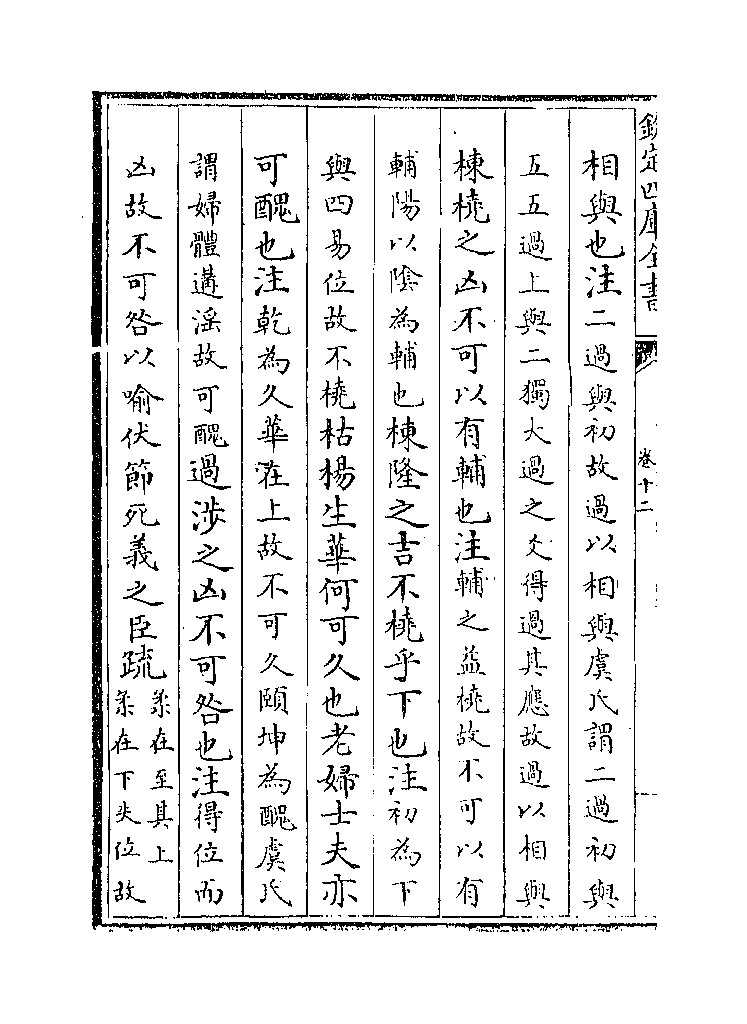 欽定四庫全書
卷十二
相與也注二過與初故過以相與虞氏謂二過初與
五五過上與二獨大過之爻得過其應故過以相與
棟橈之凶不可以有輔也注輔之益橈故不可以有
輔陽以陰為輔也棟隆之吉不橈乎下也注初為下
與四易位故不橈枯楊生華何可久也老婦士夫亦
可醜也注乾為久華在上故不可久頤坤為醜虞氏
謂婦體遘淫故可醜過涉之凶不可咎也注得位而
凶故不可咎以喻伏節死義之臣疏
象在至其上
象在下失位故